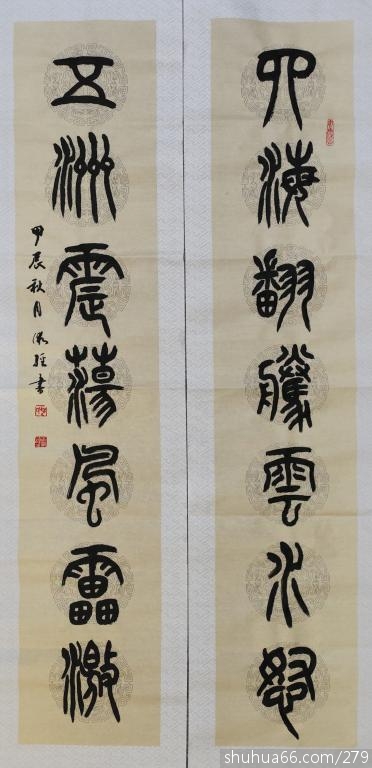 四海翻騰雲水怒
五洲震蕩風雷激
甲辰秋月
書
shuhua66.com/279